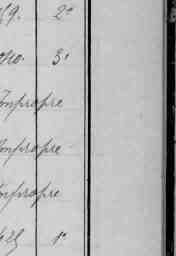 9. 2º
no. 3º
Impropre
Impropre
Impropre
1º